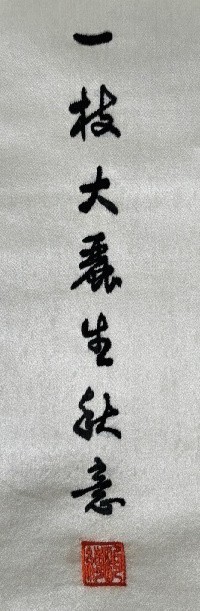 一枝大麗生秋意